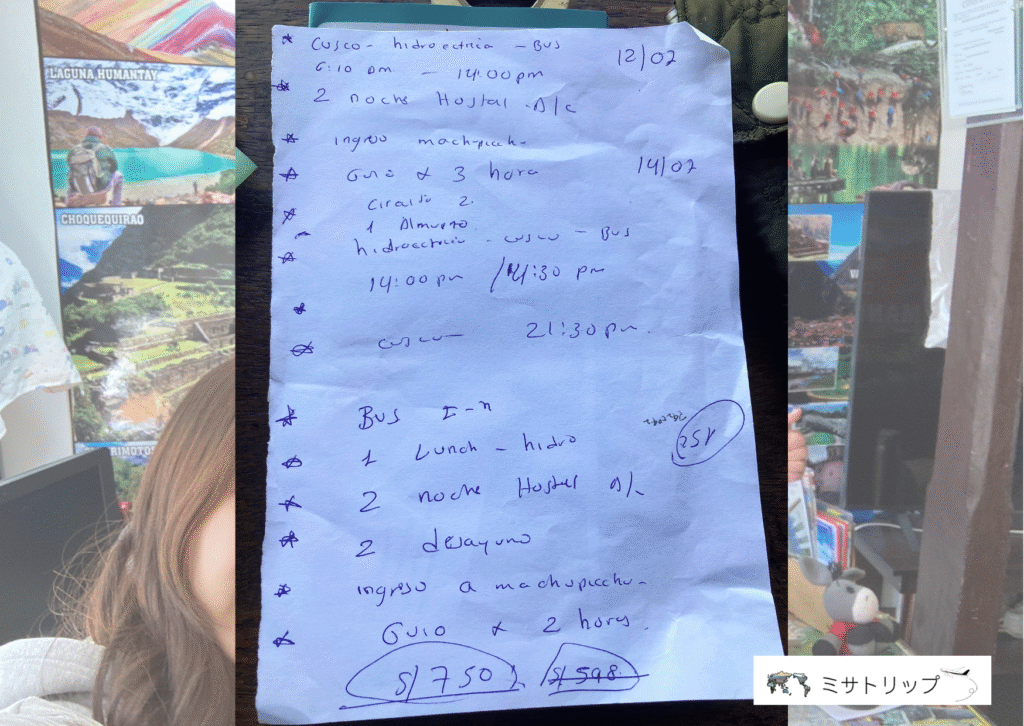 LAGUNA HUMANTAY
CHOQUEQUIRAO
* Cusco - hidroectrica - Bus 12/02
6:10 am - 14:00pm
* 2 noche Hostal A/c
* Ingreso machupicchu
* Guia x 3 hora 14/02
Circuito 2.
* 1 Almuerzo
* hidroectrica - cusco - Bus
14:00 pm / 14:30 pm
*
* cusco 21:30 pm.
* Bus I-n
* 1 Lunch - hidro
152
* 2 noche Hostal A/c
* 2 desayuno
* Ingreso a machupicchu-
* Guio x 2 horas.
S/ 750 S/ 598
ミサトリップ